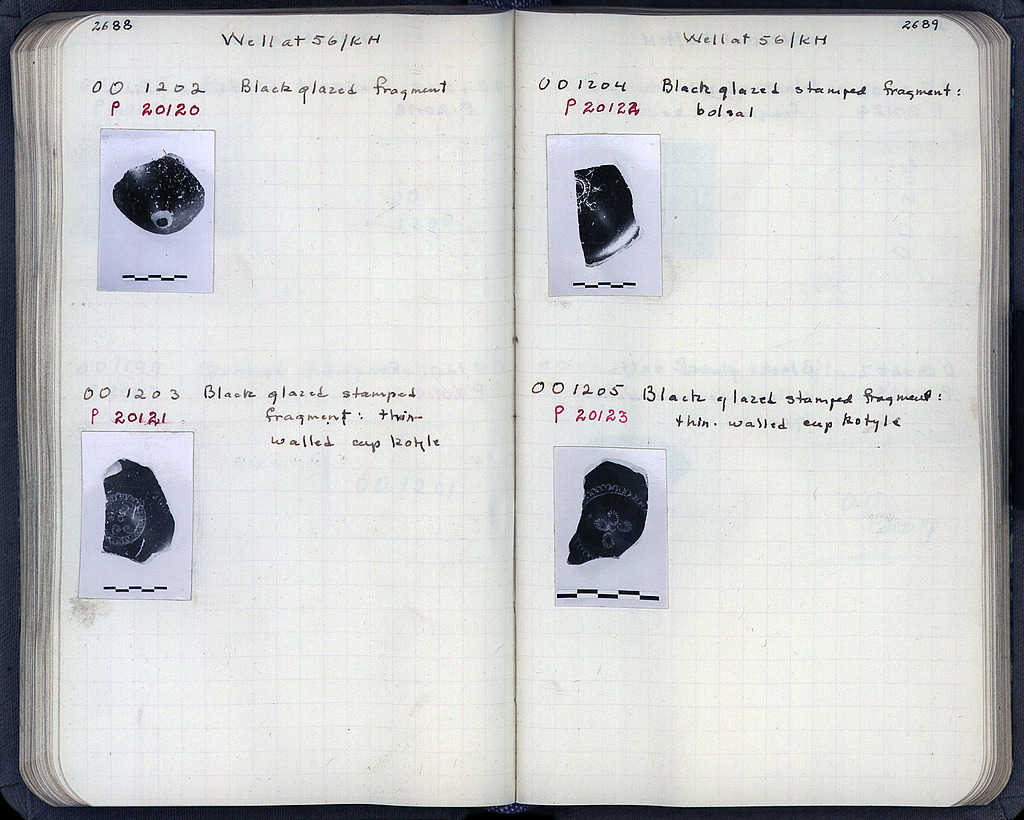 2688
Well at 56/KH
OO 1202 Black glazed fragment
P 20120
OO 1203 Black glazed stamped
P 20121 fragment: thin-
walled cup kotyle
2689
Well at 56/KH
OO 1204 Black glazed stamped fragment:
P 20122 bolsal
OO 1205 Black glazed stamped fragment:
P 20123 thin-walled cup kotyle